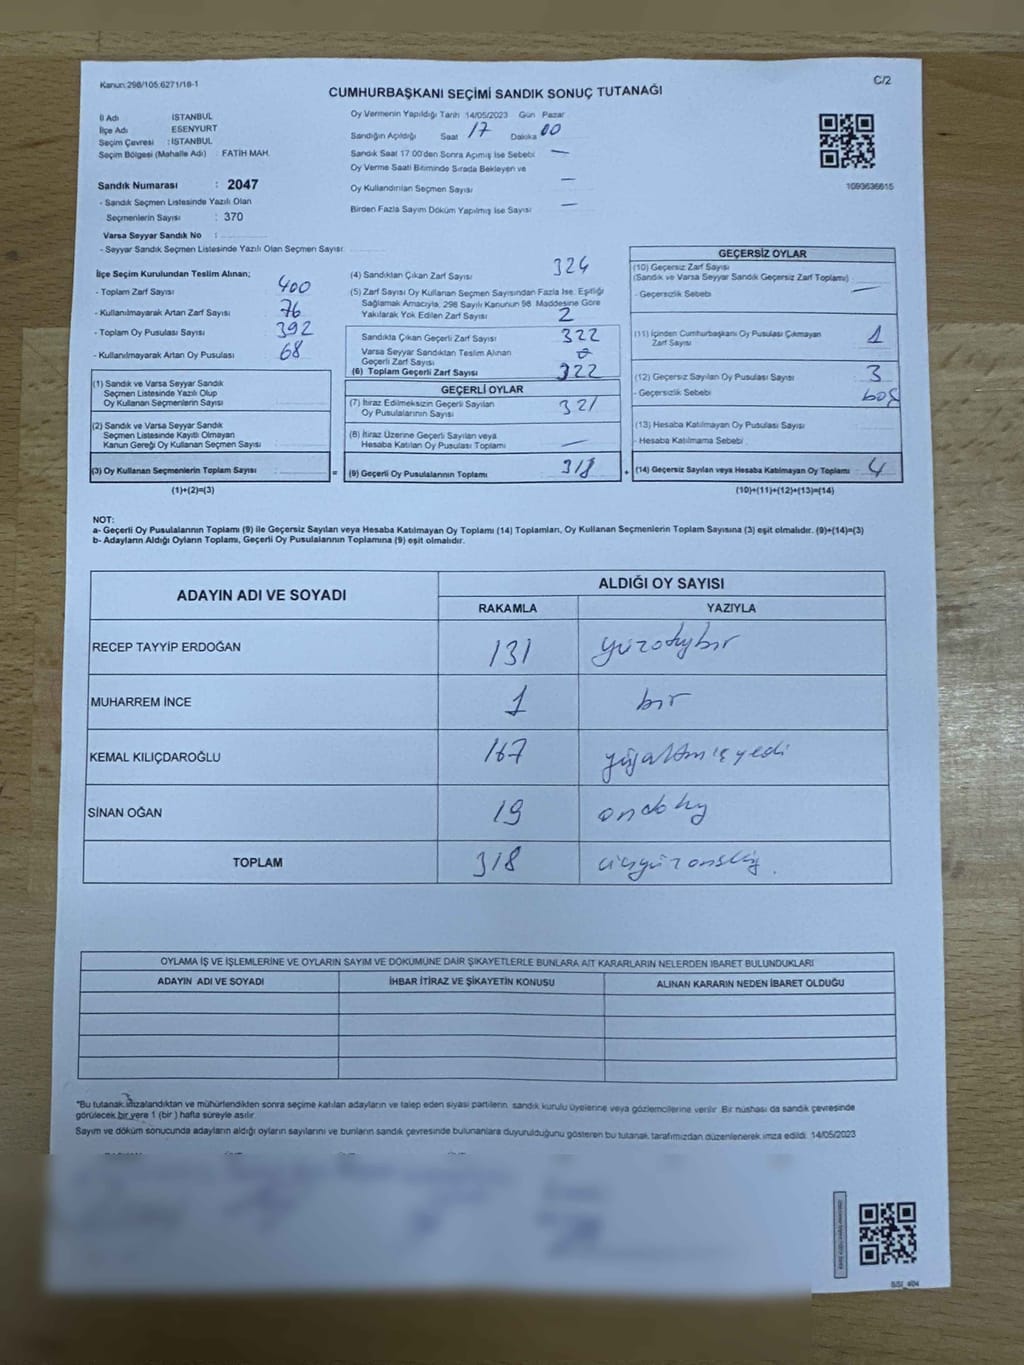 Kanun:298/105.6271/18-1
C/2
CUMHURBAŞKANI SEÇİMİ SANDIK SONUÇ TUTANAĞI
İl Adı : İSTANBUL
İlçe Adı : ESENYURT
Seçim Çevresi : İSTANBUL
Seçim Bölgesi (Mahalle Adı) : FATİH MAH.
Oy Vermenin Yapıldığı Tarih 14/05/2023 Gün Pazar
Sandığın Açıldığı Saat 17 Dakika 00
Sandık Saat 17:00'den Sonra Açımış İse Sebebi —
Oy Verme Saati Bitiminde Sırada Bekleyen ve
Oy Kullandırılan Seçmen Sayısı —
Birden Fazla Sayım Döküm Yapılmış İse Sayısı —
1093636615
Sandık Numarası : 2047
- Sandık Seçmen Listesinde Yazılı Olan
Seçmenlerin Sayısı : 370
Varsa Seyyar Sandık No :
- Seyyar Sandık Seçmen Listesinde Yazılı Olan Seçmen Sayısı:
İlçe Seçim Kurulundan Teslim Alınan;
- Toplam Zarf Sayısı 400
- Kullanılmayarak Artan Zarf Sayısı 76
- Toplam Oy Pusulası Sayısı 392
- Kullanılmayarak Artan Oy Pusulası 68
(1) Sandık ve Varsa Seyyar Sandık
Seçmen Listesinde Yazılı Olup
Oy Kullanan Seçmenlerin Sayısı
(2) Sandık ve Varsa Seyyar Sandık
Seçmen Listesinde Kayıtlı Olmayan
Kanun Gereği Oy Kullanan Seçmen Sayısı
(3) Oy Kullanan Seçmenlerin Toplam Sayısı =
(1)+(2)=(3)
(4) Sandıktan Çıkan Zarf Sayısı 324
(5) Zarf Sayısı Oy Kullanan Seçmen Sayısından Fazla İse, Eşitliği
Sağlamak Amacıyla, 298 Sayılı Kanunun 98. Maddesine Göre
Yakılarak Yok Edilen Zarf Sayısı 2
Sandıkta Çıkan Geçerli Zarf Sayısı 322
Varsa Seyyar Sandıktan Teslim Alınan
Geçerli Zarf Sayısı
(6) Toplam Geçerli Zarf Sayısı 322
GEÇERLİ OYLAR
(7) İtiraz Edilmeksizin Geçerli Sayılan
Oy Pusulalarının Sayısı 321
(8) İtiraz Üzerine Geçerli Sayılan veya
Hesaba Katılan Oy Pusulası Toplamı —
(9) Geçerli Oy Pusulalarının Toplamı 318 +
GEÇERSİZ OYLAR
(10) Geçersiz Zarf Sayısı
(Sandık ve Varsa Seyyar Sandık Geçersiz Zarf Toplamı) —
- Geçersizlik Sebebi
(11) İçinden Cumhurbaşkanı Oy Pusulası Çıkmayan
Zarf Sayısı 1
(12) Geçersiz Sayılan Oy Pusulası Sayısı 3
- Geçersizlik Sebebi boş
(13) Hesaba Katılmayan Oy Pusulası Sayısı
- Hesaba Katılmama Sebebi
(14) Geçersiz Sayılan veya Hesaba Katılmayan Oy Toplamı 4
(10)+(11)+(12)+(13)=(14)
NOT:
a- Geçerli Oy Pusulalarının Toplamı (9) ile Geçersiz Sayılan veya Hesaba Katılmayan Oy Toplamı (14) Toplamları, Oy Kullanan Seçmenlerin Toplam Sayısına (3) eşit olmalıdır. (9)+(14)=(3)
b- Adayların Aldığı Oyların Toplamı, Geçerli Oy Pusulalarının Toplamına (9) eşit olmalıdır.
ADAYIN ADI VE SOYADI ALDIĞI OY SAYISI
RAKAMLA YAZIYLA
RECEP TAYYİP ERDOĞAN 131 yüzotuzbir
MUHARREM İNCE 1 bir
KEMAL KILIÇDAROĞLU 167 yüzaltmışyedi
SİNAN OĞAN 19 ondokuz
TOPLAM 318 üçyüzonsekiz.
OYLAMA İŞ VE İŞLEMLERİNE VE OYLARIN SAYIM VE DÖKÜMÜNE DAİR ŞİKAYETLERLE BUNLARA AİT KARARLARIN NELERDEN İBARET BULUNDUKLARI
ADAYIN ADI VE SOYADI İHBAR İTİRAZ VE ŞİKAYETİN KONUSU ALINAN KARARIN NEDEN İBARET OLDUĞU
*Bu tutanak imzalandıktan ve mühürlendikten sonra seçime katılan adayların ve talep eden siyasi partilerin, sandık kurulu üyelerine veya gözlemcilerine verilir. Bir nüshası da sandık çevresinde
görülecek bir yere 1 (bir) hafta süreyle asılır.
Sayım ve döküm sonucunda adayların aldığı oyların sayılarını ve bunların sandık çevresinde bulunanlara duyurulduğunu gösteren bu tutanak tarafımızdan düzenlenerek imza edildi. 14/05/2023